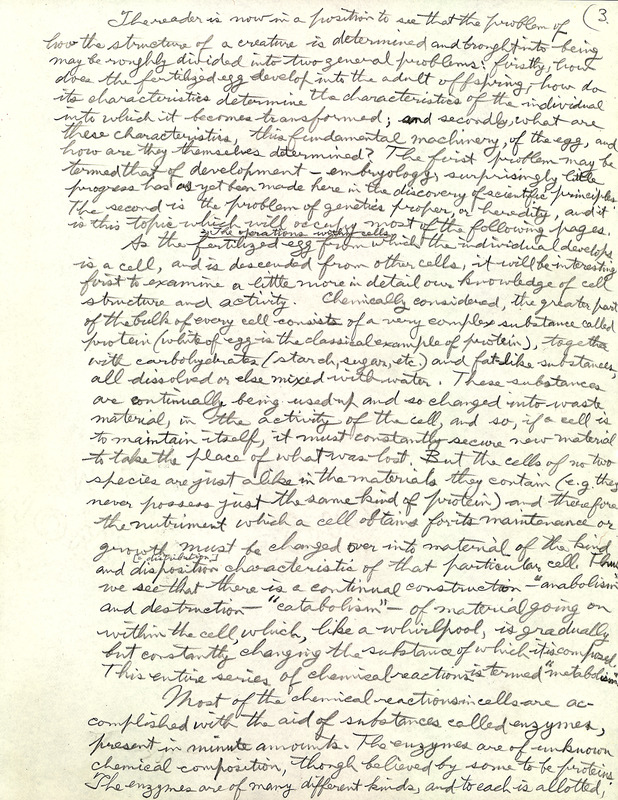 (3.
The reader is now in a position to see that the problem of
how the structure of a creature is determined and brought into being
may be roughly divided into two general problems: firstly, how
does the fertilized egg develop into the adult offspring, how do
its characteristics determine the characteristics of the individual
into which it becomes transformed; and secondly, what are
these characteristics, this fundamental machinery, of the egg, and
how are they themselves determined? The first problem may be
termed that of development – embryology; surprisingly little
progress has as yet been made here in the discovery of scientific principles.
The second is the problem of genetics proper, or heredity, and it
is this topic which will occupy most of the following pages.
2) The operations within cells
As the fertilized egg from which the individual develops
is a cell, and is descended from other cells, it will be interesting
first to examine a little more in detail our knowledge of cell
structure and activity. Chemically considered, the greater part
of the bulk of every cell consists of a very complex substance called
protein (white of egg is the classical example of protein), together
with carbohydrates (starch, sugar, etc.) and fat-like substances,
all dissolved or else mixed with water. These substances
are continually being used up and so changed into waste
material, in the activity of the cell, and so, if a cell is
to maintain itself, it must constantly secure new material
to take the place of what was lost. But the cells of no two
species are just alike in the materials they contain (e.g. they
never possess just the same kind of protein) and therefore
the nutriment which a cell obtains for its maintenance or
growth must be changed over into material of the kind
(= distribution)
and disposition characteristic of that particular cell. Thus
we see that there is a continual construction – "anabolism"
and destruction – "catabolism" – of material going on
within the cell, which, like a whirlpool, is gradually
but constantly changing the substance of which it is composed.
This entire series of chemical reactions is termed "metabolism"
Most of the chemical reactions in cells are ac-
complished with the aid of substances called enzymes,
present in minute amounts. The enzymes are of unknown
chemical composition, though believed by some to be proteins.
The enzymes are of many different kinds, and to each is allotted,